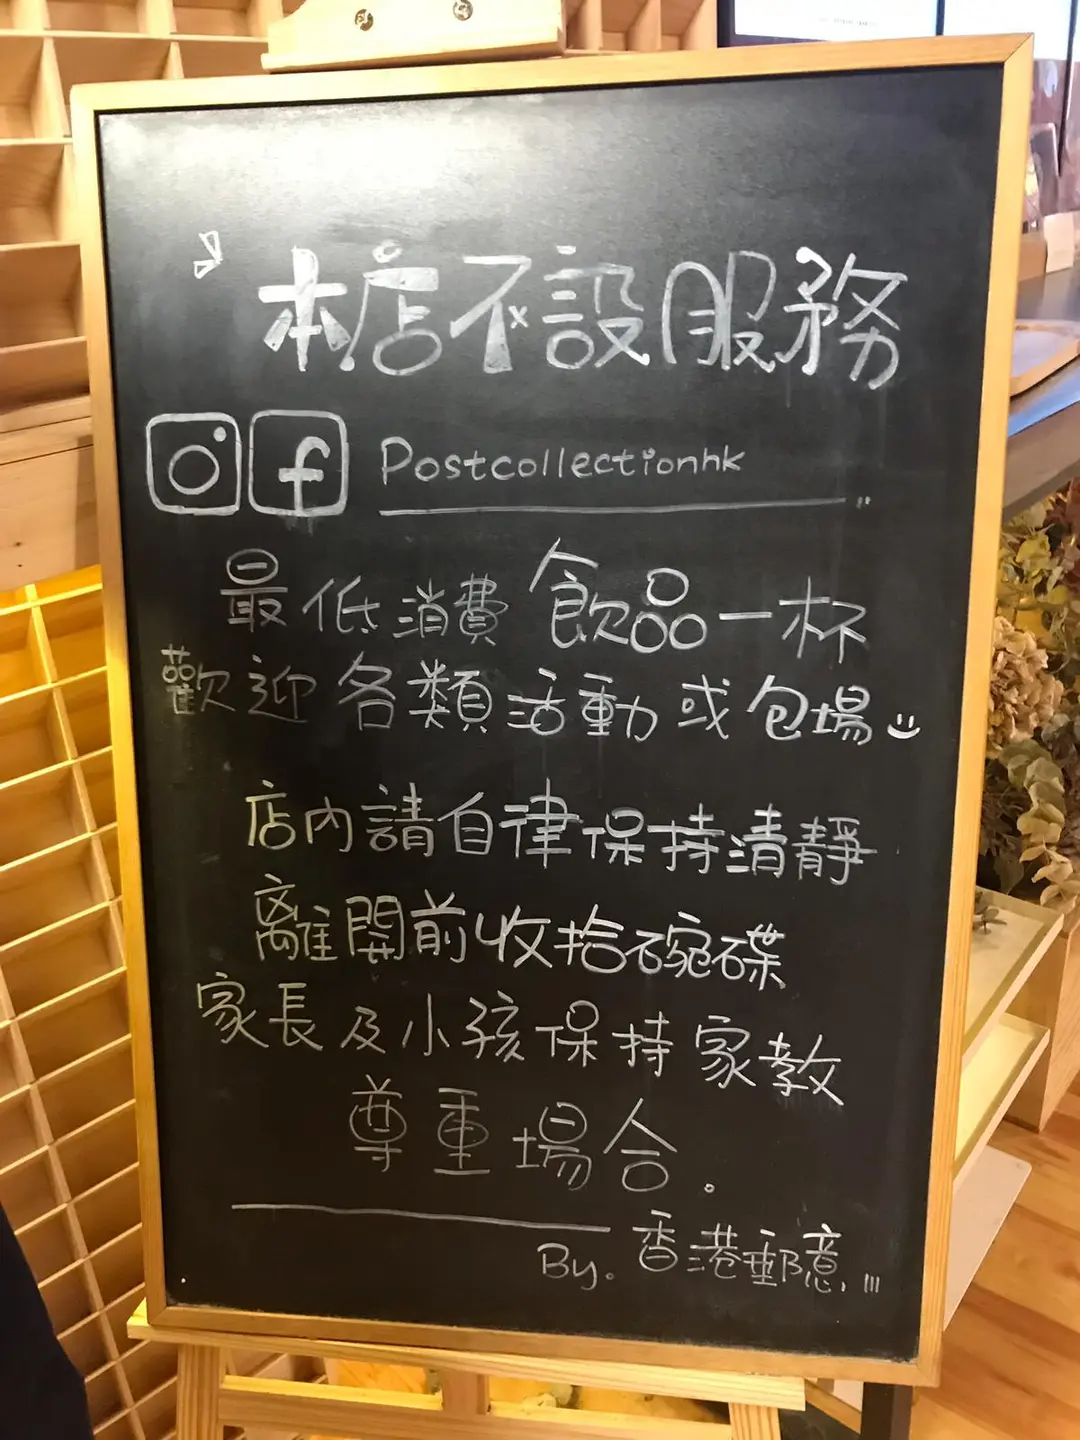 本店不設服務
f Postcollectionhk
最低消費飲品一杯
歡迎各類活動或包場
店內請自律保持清靜
離開前收拾碗碟
家長及小孩保持家教
尊重場合.
By. 香港郵憶